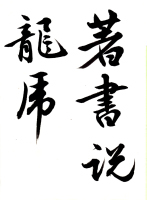 著書说
龍虎